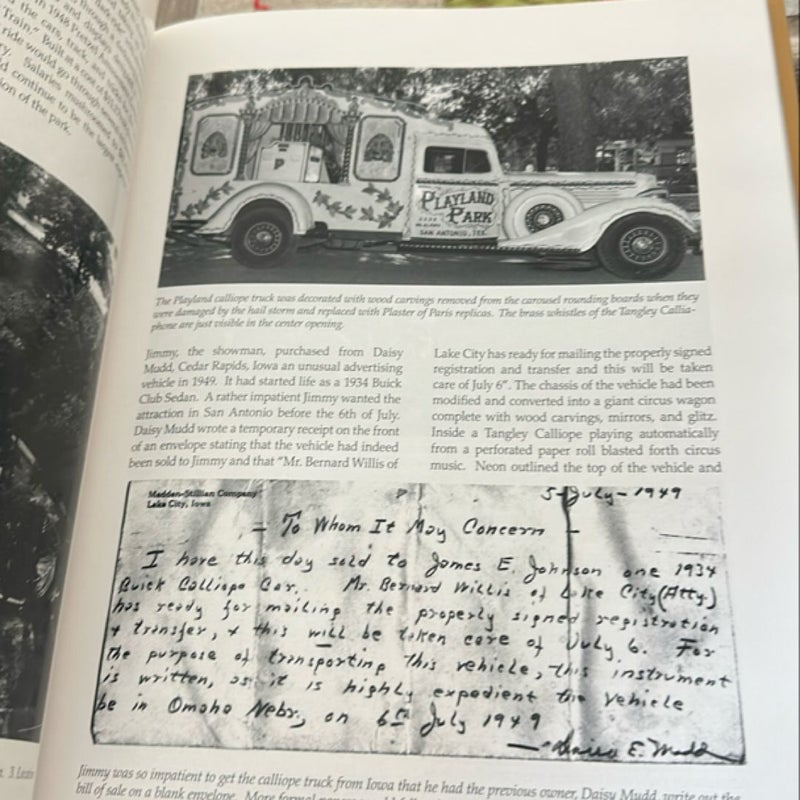 in 1948 Pretzel
Train." Built at a cost of
ride would go through
Salaries
continue to be the
of the park.
PLAYLAND
PARK
SAN ANTONIO, TEX.
The Playland calliope truck was decorated with wood carvings removed from the carousel rounding boards when they
were damaged by the hail storm and replaced with Plaster of Paris replicas. The brass whistles of the Tangley Callia-
phone are just visible in the center opening.
Jimmy, the showman, purchased from Daisy
Mudd, Cedar Rapids, Iowa an unusual advertising
vehicle in 1949. It had started life as a 1934 Buick
Club Sedan. A rather impatient Jimmy wanted the
attraction in San Antonio before the 6th of July.
Daisy Mudd wrote a temporary receipt on the front
of an envelope stating that the vehicle had indeed
been sold to Jimmy and that "Mr. Bernard Willis of
Lake City has ready for mailing the properly signed
registration and transfer and this will be taken
care of July 6". The chassis of the vehicle had been
modified and converted into a giant circus wagon
complete with wood carvings, mirrors, and glitz.
Inside a Tangley Calliope playing automatically
from a perforated paper roll blasted forth circus
music. Neon outlined the top of the vehicle and
Madden-Stillian Company
Lake City, Iowa
5-July-1949
- To Whom It May Concern -
I have this day sold to James E. Johnson one 1934
Buick Calliope Car. Mr. Bernard Willis of Lake City (Atty.)
has ready for mailing the properly signed registration
+ transfer, + this will be taken care of July 6. For
the purpose of transporting this vehicle, this instrument
is written, as it is highly expedient the vehicle
be in Omaha Nebr, on 6th July 1949
E. Mudd
Jimmy was so impatient to get the calliope truck from Iowa that he had the previous owner, Daisy Mudd, write out the
bill of sale on a blank envelope. More formal